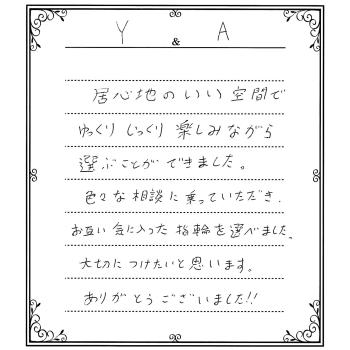 Y & A
居心地のいい空間で
ゆっくり じっくり 楽しみながら
選ぶことができました。
色々な相談に乗っていただき、
お互い気に入った指輪を選べました。
大切につけたいと思います。
ありがとうございました!!